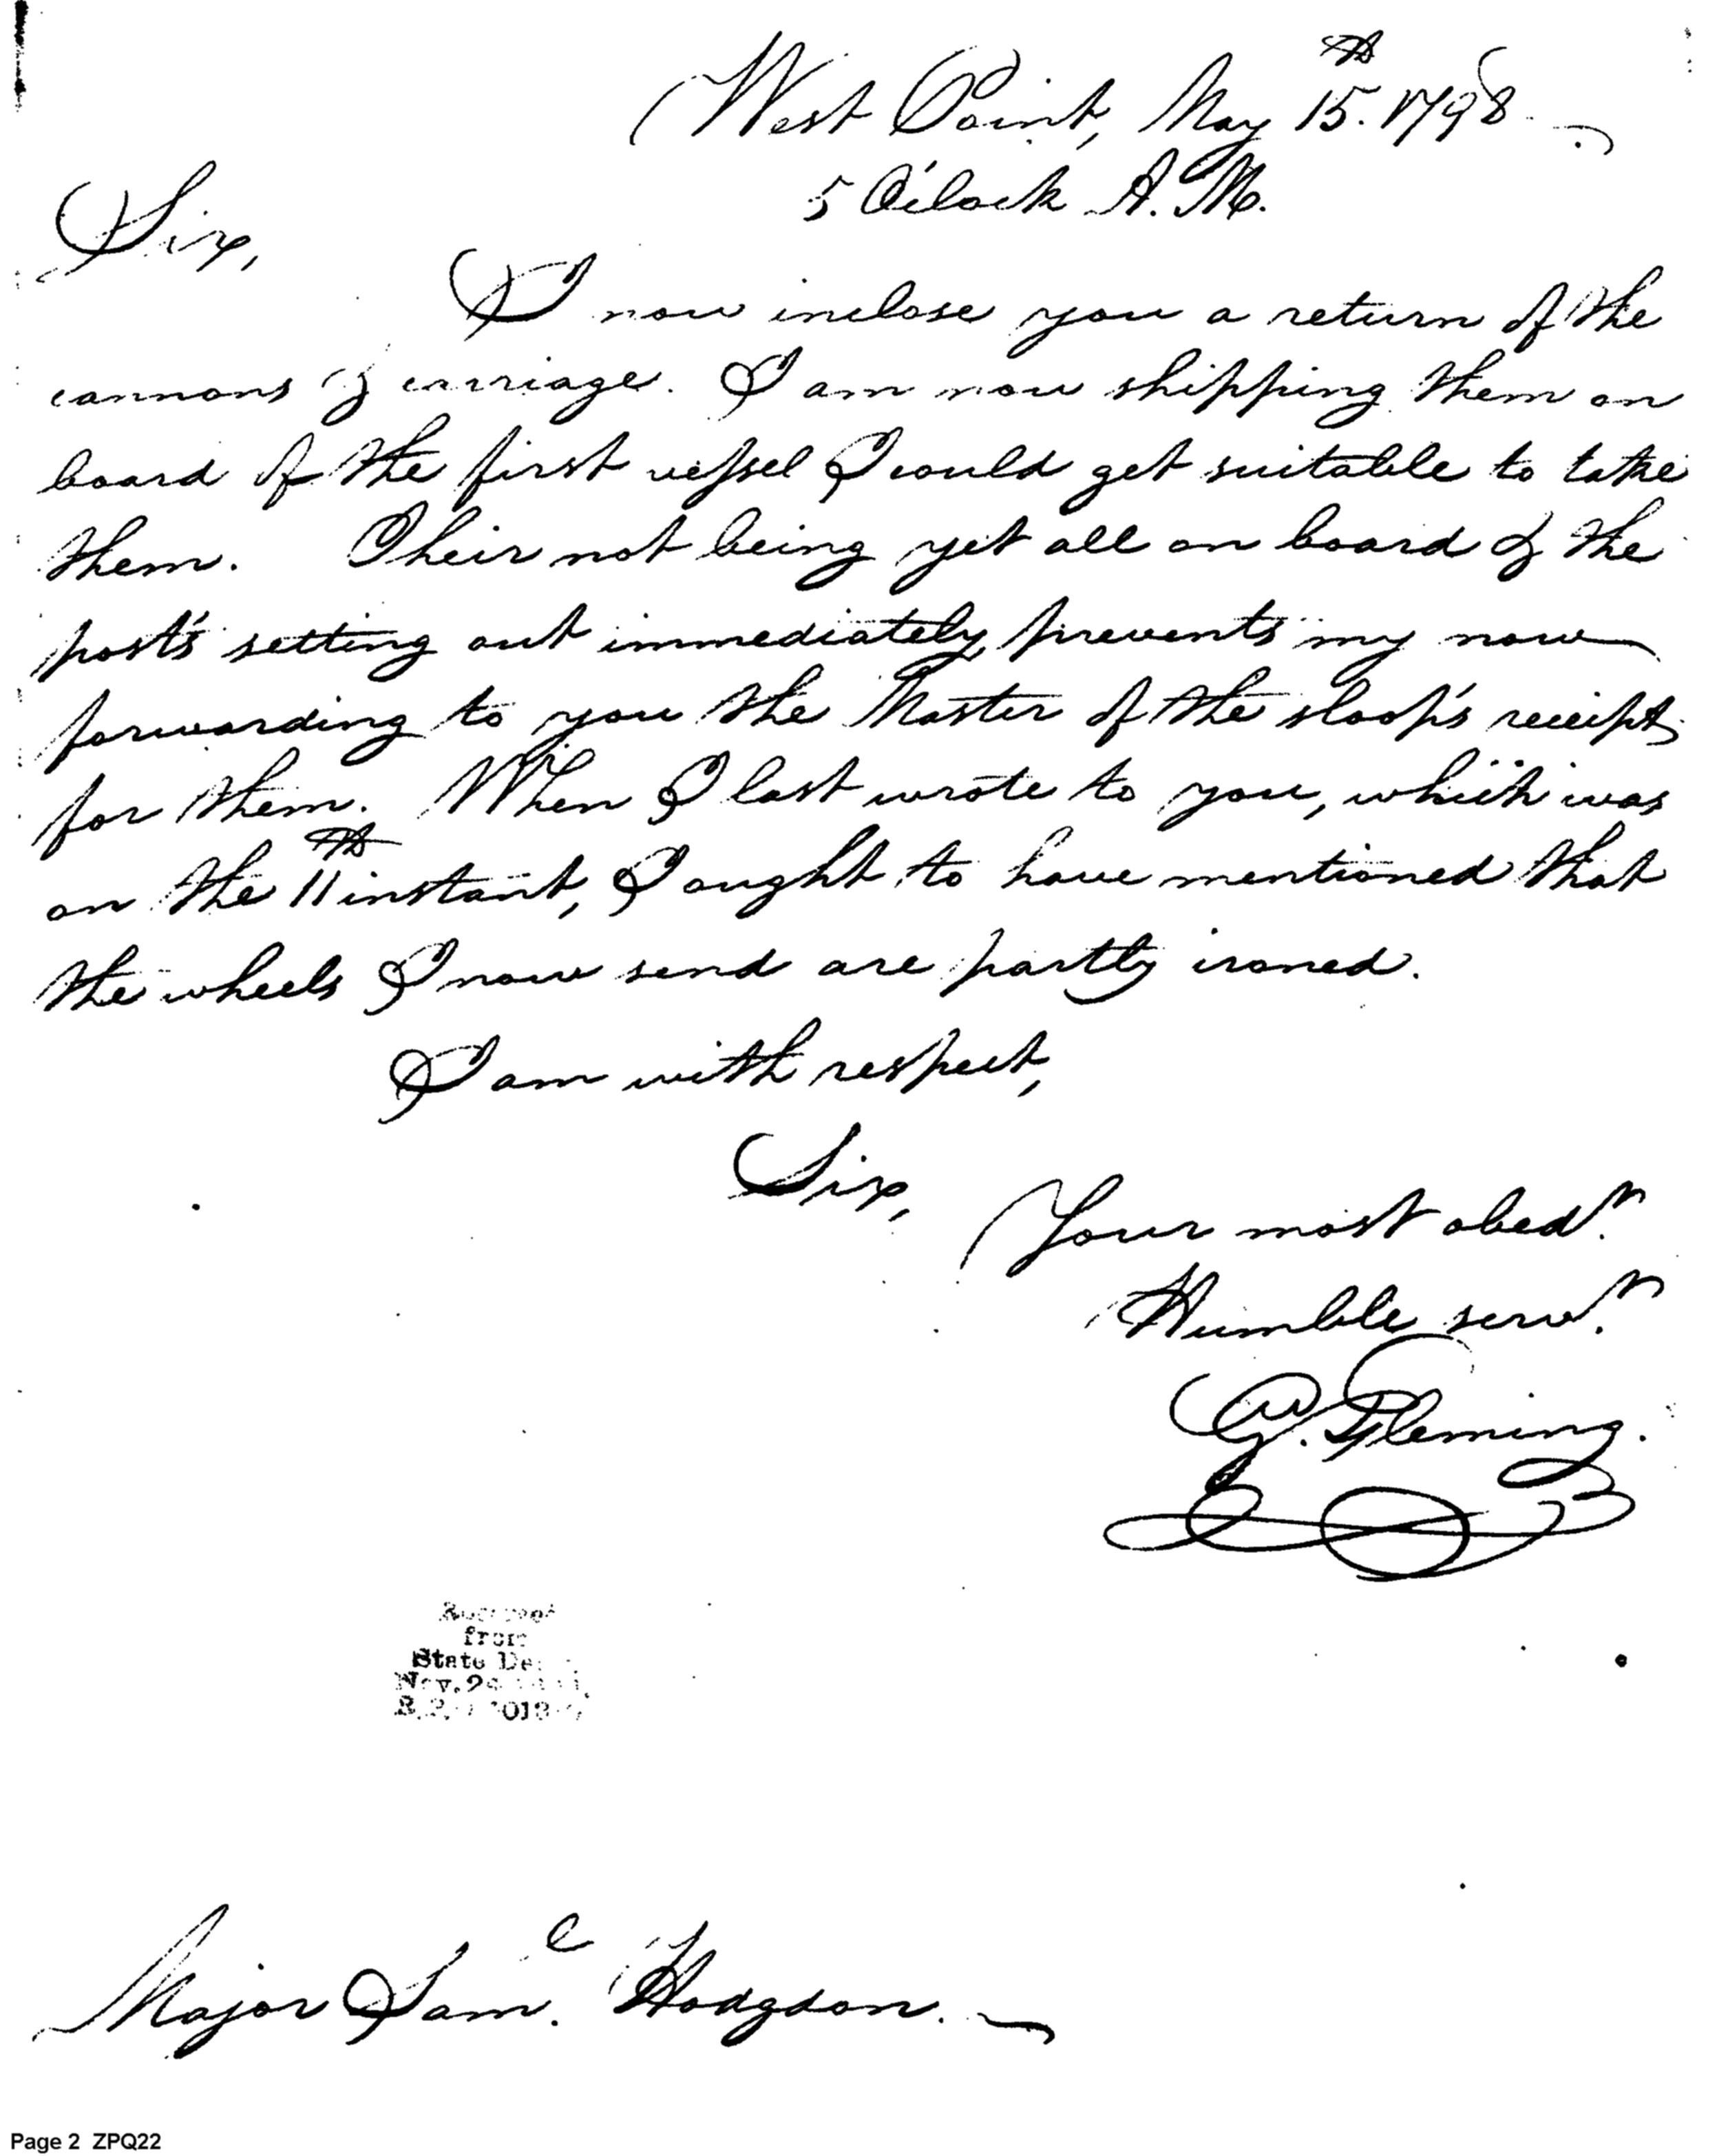 West Point, May 15th. 1798.
5 O'clock A.M.
Sir,
I now inclose you a return of the
cannons & carriage. I am now shipping them on
board of the first vessel I could get suitable to take
them. Their not being yet all on board & the
post's setting out immediately prevents my now
forwarding to you the Master of the sloop's receipt
for them. When I last wrote to you, which was
on the 11th instant, I ought to have mentioned that
the wheels I now send are partly ironed.
I am with respect,
Sir,
Your most obedt.
Humble servt.
G. Fleming.
from
State
Nov. 2
Major Saml. Hodgdon.
Page 2 ZPQ22